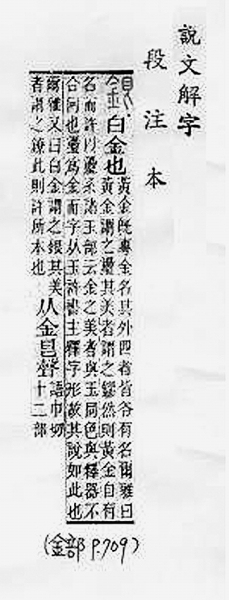 說文解字
段注本
銀 白金也
黃金旣專金名其外四者皆各有名爾雅曰
黃金謂之璗其美者謂之鏐然則黃金自有
名而許以璗系諸玉部云金之美者與玉同色與釋器不
合何也璗爲金而字从玉許書主釋字形故其說如此也
爾雅又曰白金謂之銀其美
者謂之鐐此則許所本也
从金㫐聲
語巾切
十二部
(金部 P.709)